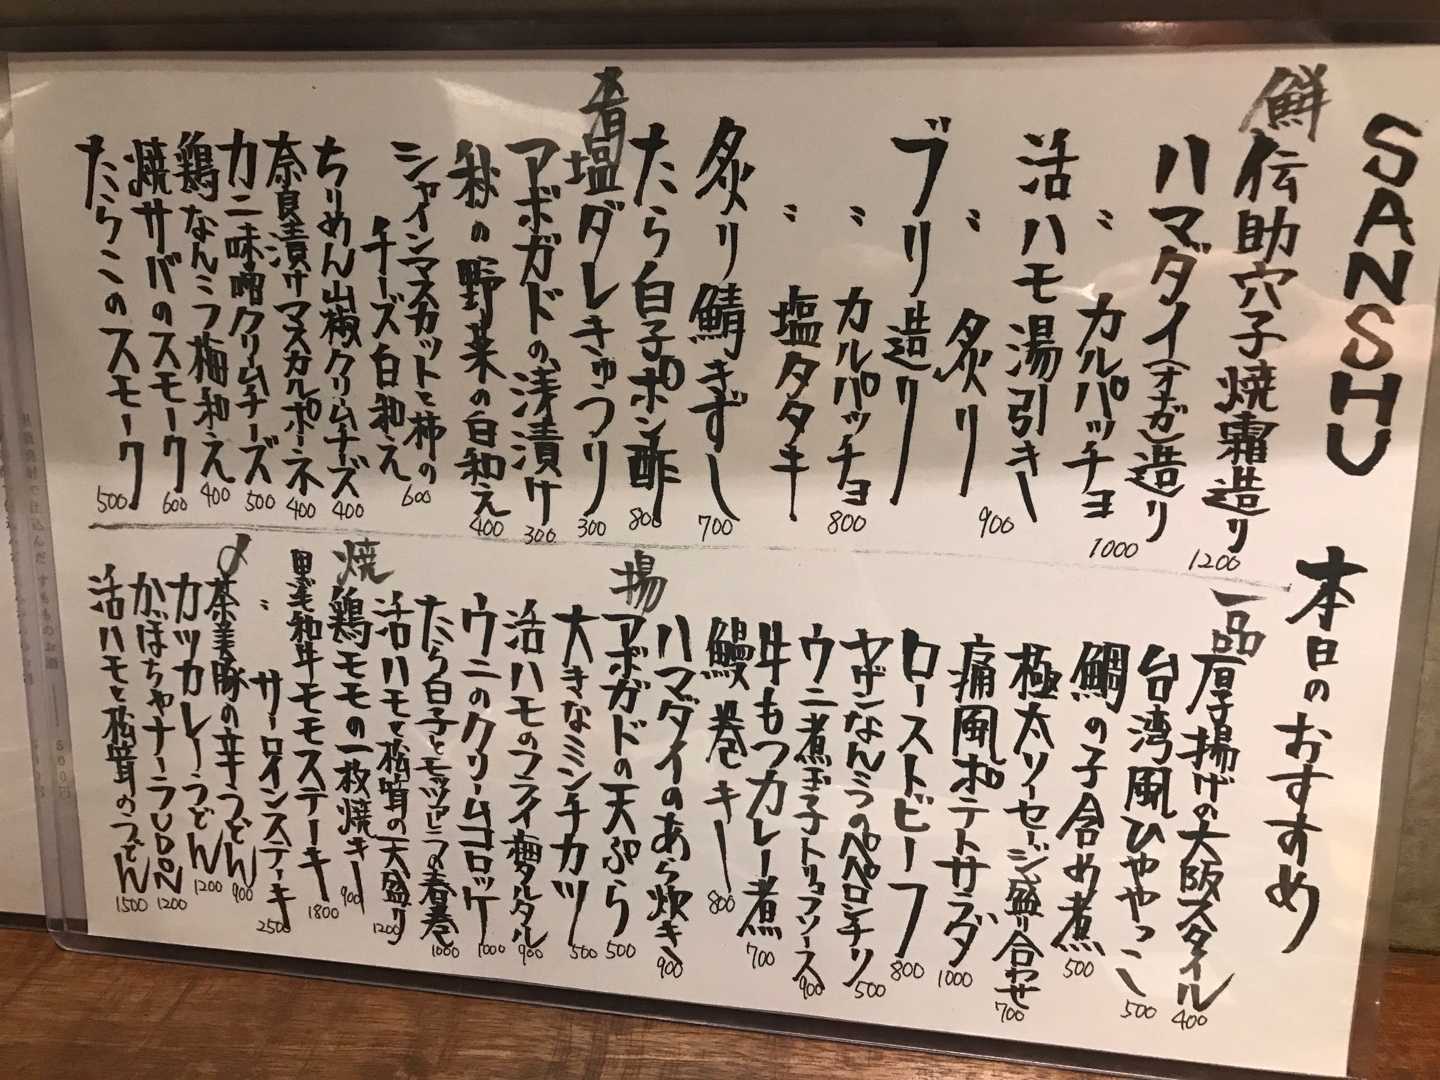 SANSHU 本日のおすすめ
鮮
伝助穴子焼霜造り 1200
ハマダイ(オナガ)造り
〃 カルパッチョ 1000
活ハモ湯引き
〃 炙り 900
ブリ造り
〃 カルパッチョ 800
〃 塩タタキ
炙り鯖きずし 700
たら白子ポン酢 800
肴
塩ダレきゅうり 300
アボガドの浅漬け 300
秋の野菜の白和え 400
シャインマスカットと柿の
チーズ白和え 600
ちりめん山椒クリームチーズ 400
奈良漬けマスカルポーネ 400
カニ味噌クリームチーズ 500
鶏なんこつ梅和え 400
焼サバのスモーク 600
たらこのスモーク 500
一品
厚揚げの大阪スタイル 400
台湾風ひややっこ 500
鯛の子含め煮 500
極太ソーセージ盛り合わせ 700
痛風ポテトサラダ 1000
ローストビーフ 800
ヤゲンなんこつのペペロンチリ 500
ウニ煮玉子トリュフソース 900
牛もつカレー煮 700
鰻巻き 800
ハマダイのあら炊き 900
揚
アボガドの天ぷら 500
大きなミンチカツ 500
活ハモのフライ 梅タルタル 900
ウニのクリームコロッケ 1000
たら白子とモッツァレラの春巻 1000
活ハモと松茸の天盛り 1200
焼
鶏モモの一枚焼き 900
黒毛和牛モモステーキ 1800
〃 サーロインステーキ 2500
〆
茶美豚の辛うどん 900
カツカレーうどん 1200
かぼちゃナーラUDON 1200
活ハモと松茸のうどん 1500